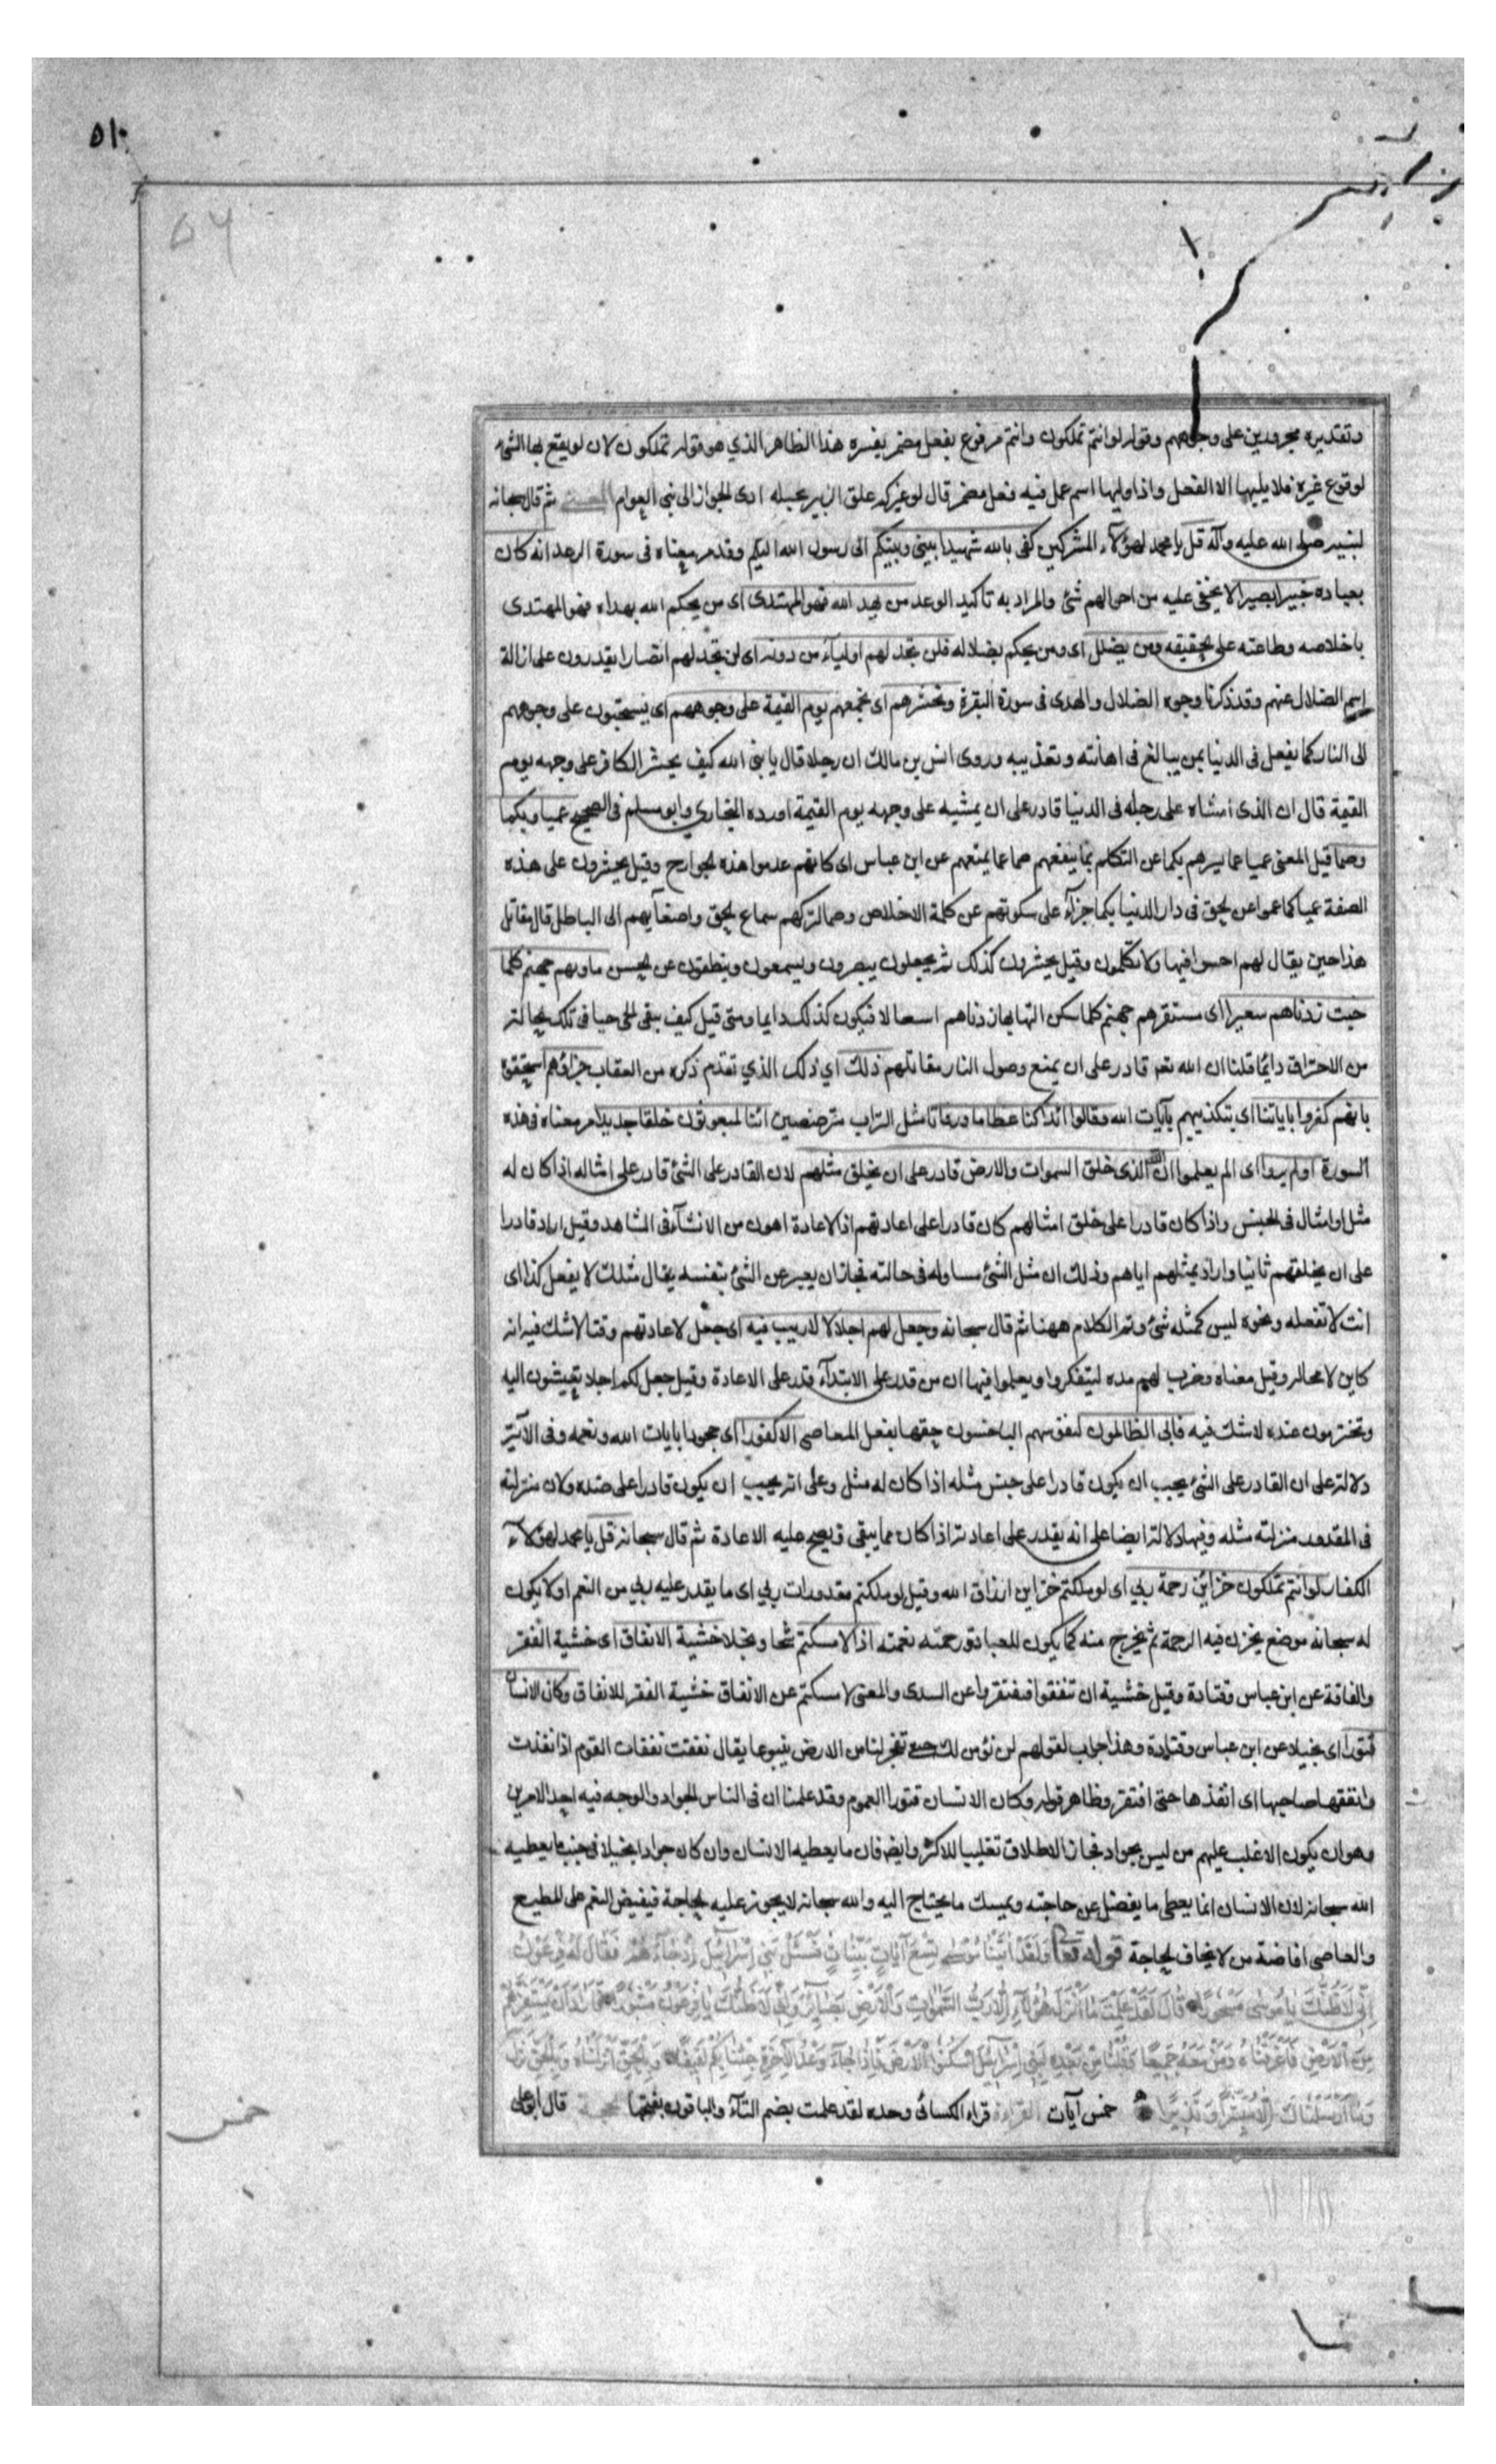 ٥١٠
٥٦
وتقديره مجرورين على وجوههم وقوله لو انتم تملكون وانتم مرفوع بفعل مضمر يفسره هذا الظاهر الذي هو قوله تملكون لان لو يقع بها الشئ
لوقوع غيره فلا يليها الا الفعل واذا وليها اسم عمل فيه فعل مضمر قال لو غيركم علق الزبير بحبله ادى الجوار الى بنى العوام المعنى ثم قال سبحانه
لنبيه صلى الله عليه وآله قل يا محمد لهؤلاء المشركين كفى بالله شهيدا بينى وبينكم انى رسول الله اليكم وقد مر معناه فى سورة الرعد انه كان
بعباده خبيرا بصيرا لا يخفى عليه من احوالهم شئ والمراد به تاكيد الوعد من يهد الله فهو المهتدى اى من يحكم الله بهداه فهو المهتدى
باخلاصه وطاعته على الحقيقه ومن يضلل اى ومن يحكم بضلاله فلن تجد لهم اولياء من دونه اى لن تجد لهم انصارا يقدرون على ازالة
اسم الضلال عنهم وقد ذكرنا وجوه الضلال والهدى فى سورة البقرة ونحشرهم اى نجمعهم يوم القيمة على وجوههم اى يسحبون على وجوههم
الى النار كما يفعل فى الدنيا بمن يبالغ فى اهانته وتعذيبه وروى انس بن مالك ان رجلا قال يا نبى الله كيف يحشر الكافر على وجهه يوم
القيمة قال ان الذى امشاه على رجله فى الدنيا قادر على ان يمشيه على وجهه يوم القيمة اورده البخارى وابو مسلم فى الصحيح عميا وبكما
وصما قيل المعنى عميا عما يسرهم بكما عن التكلم بما ينفعهم صما عما يمتعهم عن ابن عباس اى كانهم عدموا هذه الجوارح وقيل يحشرون على هذه
الصفة عميا كما عموا عن الحق فى دار الدنيا بكما جزآء على سكوتهم عن كلمة الاخلاص وصما لتركهم سماع الحق واصغآيهم الى الباطل قال مقاتل
هذا حين يقال لهم اخسوا فيها ولا تكلمون وقيل يحشرون كذلك ثم يجعلون يبصرون ويسمعون وينطقون عن الحسن ماويهم جهنم كلما
خبت زدناهم سعيرا اى مستقرهم جهنم كلما سكن التهابها زدناهم اسعالا فيكون كذلك دايما ومتى قيل كيف يبقى الحى حيا فى تلك الحالة
من الاحتراق دايما قلنا ان الله تعا قادر على ان يمنع وصول النار مقاتلهم ذلك اي ذلك الذي تقدم ذكره من العقاب جزاؤهم استحقوه
بانهم كفروا باياتنا اى بتكذيبهم بآيات الله وقالوا ائذا كنا عظاما ورفاتا مثل التراب مترضضين ائنا لمبعوثون خلقا جديدا مر معناه فى هذه
السورة اولم يروا اى الم يعلموا ان الله الذى خلق السموات والارض قادر على ان يخلق مثلهم لان القادر على الشئ قادر على امثاله اذا كان له
مثل او امثال فى الجنس واذا كان قادرا على خلق امثالهم كان قادرا على اعادتهم اذ الاعادة اهون من الانشآء فى الشاهد وقيل اراد قادرا
على ان يخلقهم ثانيا واراد بمثلهم اياهم وذلك ان مثل الشئ مساو له فى حالته فجاز ان يعبر عن الشئ بنفسه يقال مثلك لا يفعل كذا اى
انت لا تفعله ونحوه ليس كمثله شئ وتم الكلام ههنا ثم قال سبحانه وجعل لهم اجلا لا لاريب فيه اى جعل لاعادتهم وقتا لا شك فيه انه
كاين لا محاله وقيل معناه وضرب لهم مده ليتفكروا ويعلموا فيها ان من قدر على الابتدآء قدر على الاعادة وقيل جعل لكم اجلا تعيشون اليه
وتخترمون عنده لا شك فيه فابى الظالمون لنفوسهم الباخسون حقها بفعل المعاصى الا كفورا اى جحودا بايات الله ونعمه وفى الآية
دلالة على ان القادر على الشئ يجب ان يكون قادرا على جنس مثله اذا كان له مثل وعلى انه يجب ان يكون قادرا على ضده ولان منزلته
فى المقدور منزلته مثله وفيها دلالة ايضا على انه يقدر على اعادته اذا كان مما يبقى ويصح عليه الاعادة ثم قال سبحانه قل يا محمد لهؤلآء
الكفار لو انتم تملكون خزاين رحمة ربي اى لو ملكتم خزاين ارزاق الله وقيل لو ملكتم مقدورات ربي اى ما يقدر عليه ربي من النعم اولا يكون
له سبحانه موضع يخزن فيه الرحمة ثم يخرج منه كما يكون للعباد ورحمته نعمته اذا لامسكتم شحا وبخلا خشية الانفاق اى خشية الفقر
والفاقة عن ابن عباس وقتادة وقيل خشية ان تنفقوا فتفتقروا عن السدى والمعنى لامسكتم عن الانفاق خشية الفقر للانفاق وكان الانسان
قتورا اى بخيلا عن ابن عباس وقتادة وهذا جواب لقولهم لن نؤمن لك حتى تفجر لنا من الارض ينبوعا يقال نفقت نفقات القوم اذا نفدت
وانفقها صاحبها اى انفذها حتى افتقر وظاهر قوله وكان الانسان قتورا العموم وقد علمنا ان فى الناس الجواد والوجه فيه احد الامرين
وهو ان يكون الاغلب عليهم من ليس بجواد فجاز الاطلاق تغليبا للاكثر وايضا فان ما يعطيه الانسان وان كان جوادا بخيلا فى جنب ما يعطيه
الله سبحانه لان الانسان انما يعطى ما يفضل عن حاجته ويمسك ما يحتاج اليه والله سبحانه لا يجوز عليه الحاجة فيفيض النعم على المطيع
والعاصى افاضة من لا يخاف الحاجة قوله تعا وَلَقَدْ آتَيْنَا مُوسَى تِسْعَ آيَاتٍ بَيِّنَاتٍ فَسْئَلْ بَنِى إِسْرَآئِيلَ إِذْ جَاءَهُمْ فَقَالَ لَهُ فِرْعَوْنُ
إِنِّى لَأَظُنُّكَ يَا مُوسَى مَسْحُورًا قَالَ لَقَدْ عَلِمْتَ مَا أَنْزَلَ هَؤُلَآءِ إِلَّا رَبُّ السَّمَوَاتِ وَالْأَرْضِ بَصَآئِرَ وَإِنِّى لَأَظُنُّكَ يَا فِرْعَوْنُ مَثْبُورًا فَأَرَادَ أَنْ يَسْتَفِزَّهُمْ
مِنَ الْأَرْضِ فَأَغْرَقْنَاهُ وَمَنْ مَعَهُ جَمِيعًا وَقُلْنَا مِنْ بَعْدِهِ لِبَنِى إِسْرَآئِيلَ اسْكُنُوا الْأَرْضَ فَإِذَا جَآءَ وَعْدُ الْآخِرَةِ جِئْنَا بِكُمْ لَفِيفًا وَبِالْحَقِّ أَنْزَلْنَاهُ وَبِالْحَقِّ نَزَلَ
وَمَا أَرْسَلْنَاكَ إِلَّا مُبَشِّرًا وَنَذِيرًا خمس آيات القراءة قراء الكسائى وحده لقد علمت بضم التآء والباقون بفتحها الحجة قال ابو على
خمس